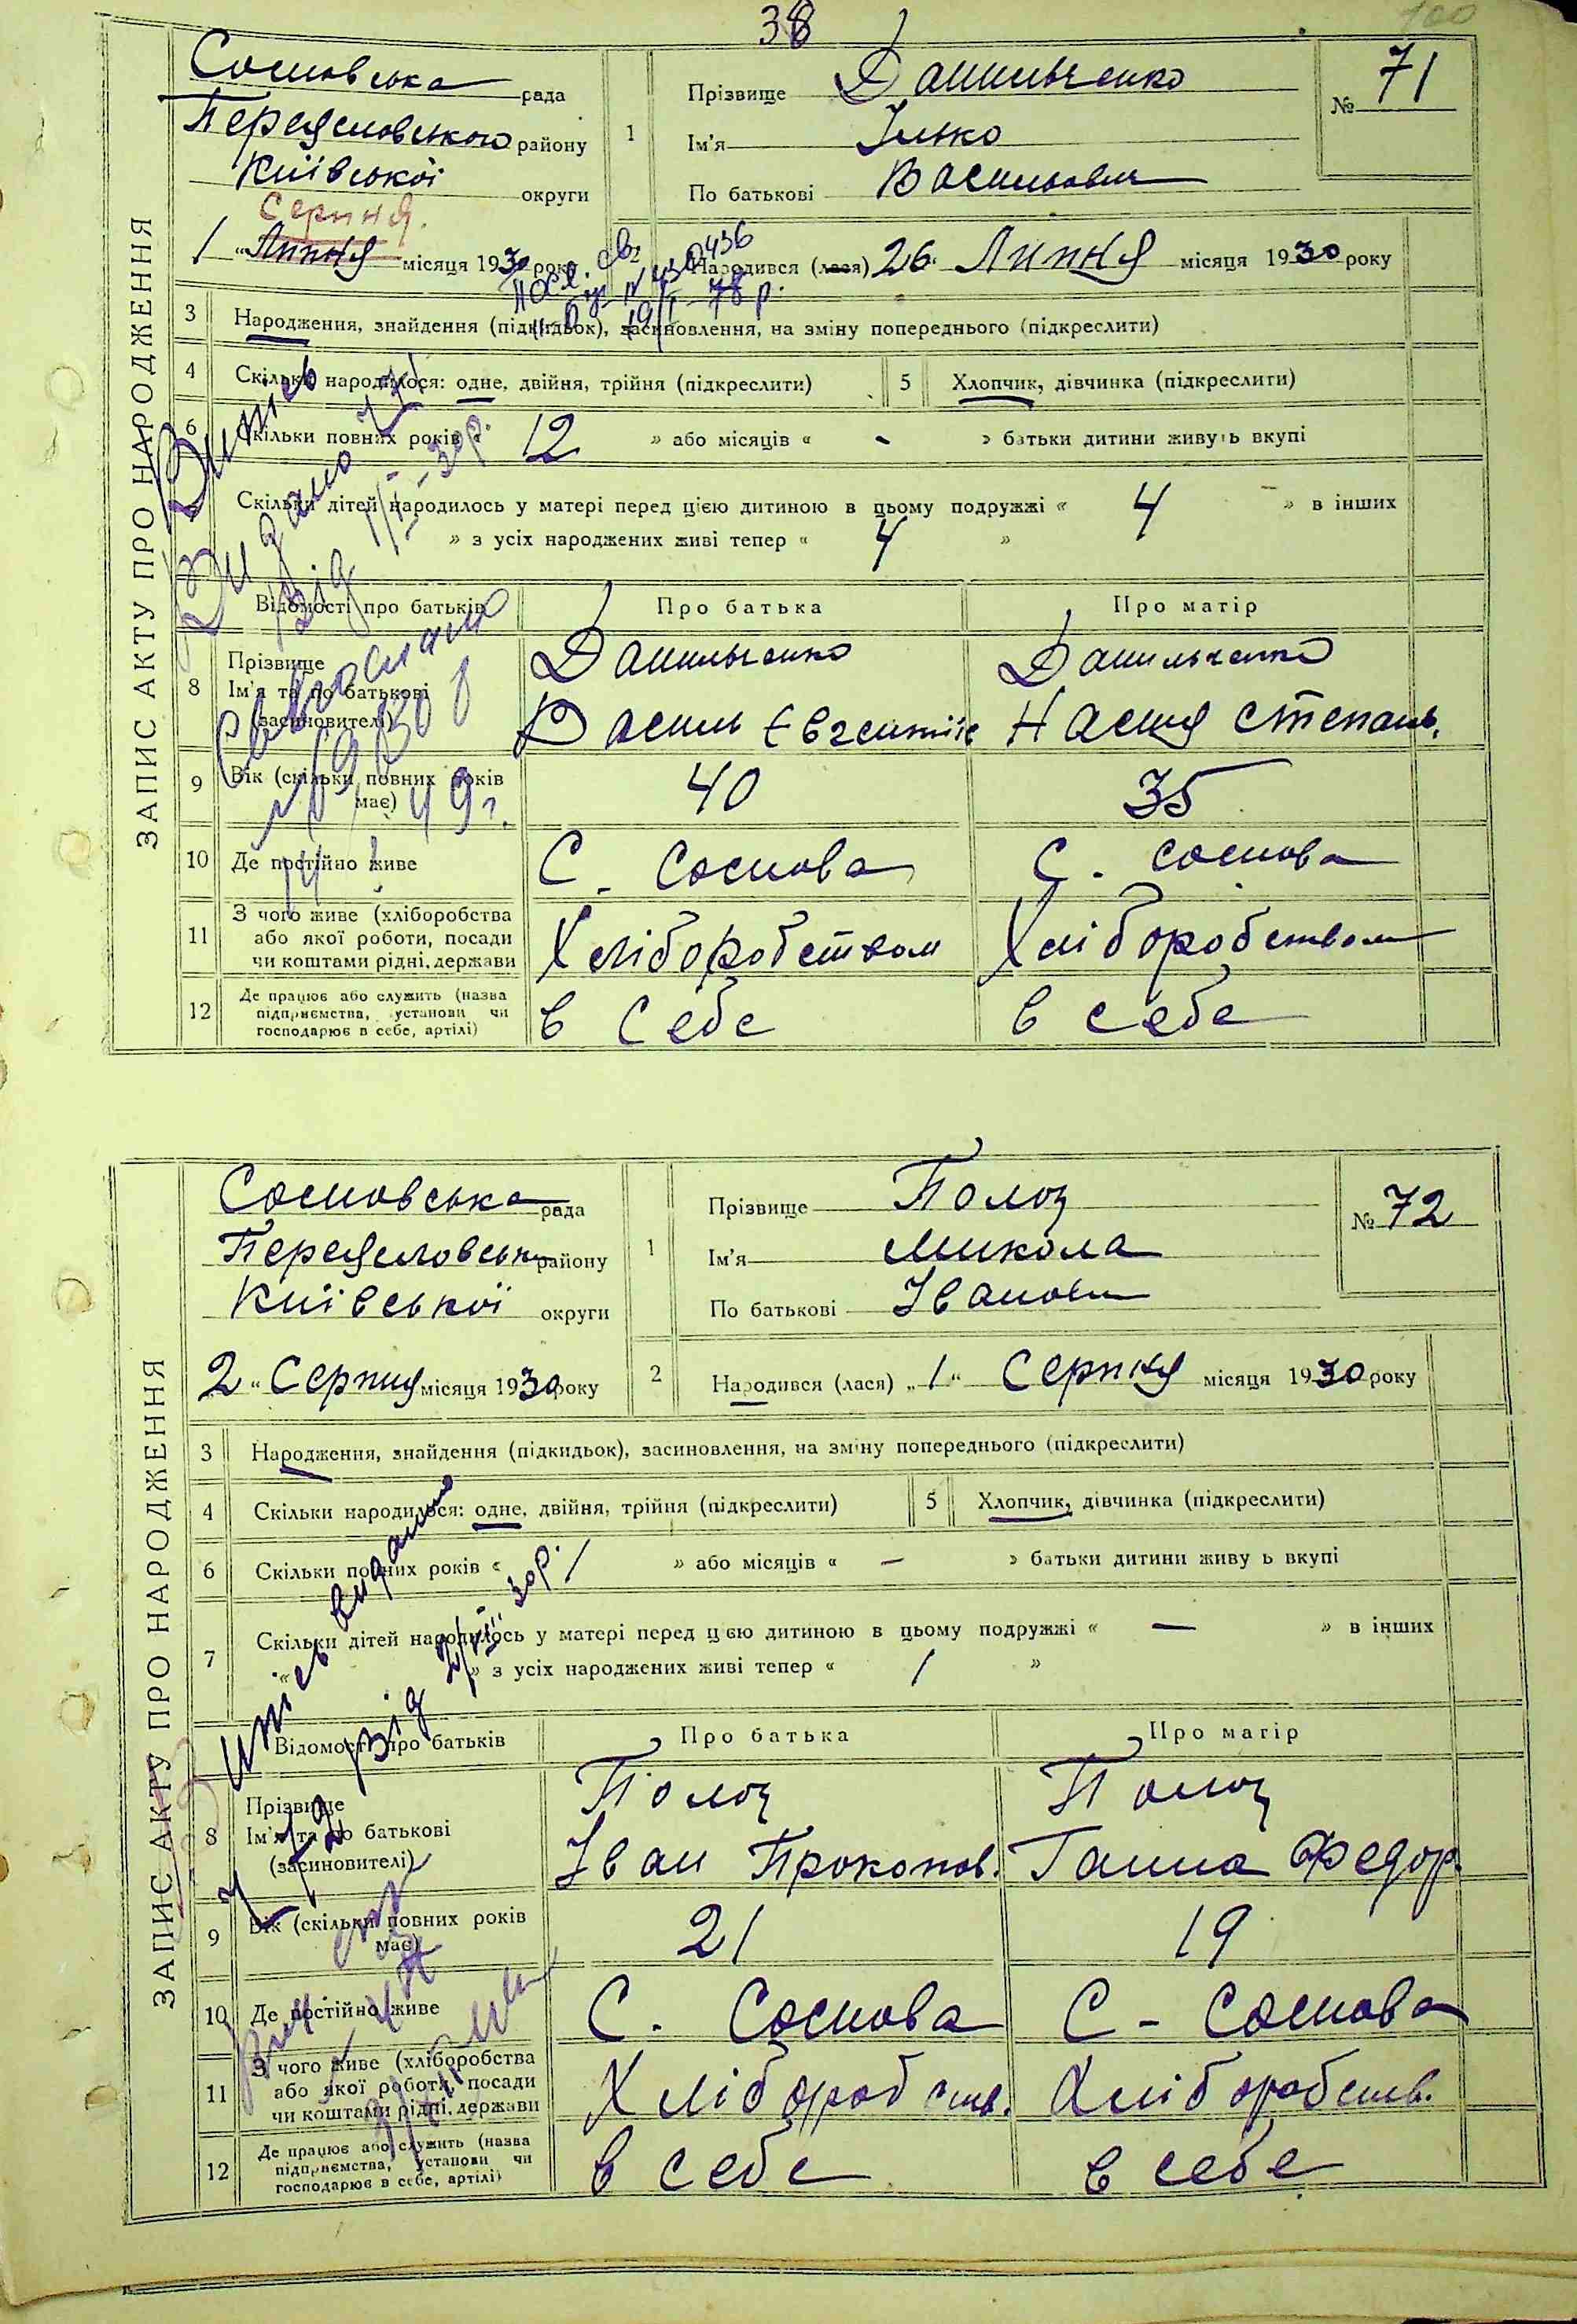 38
100
ЗАПИС АКТУ ПРО НАРОДЖЕННЯ
Сосновська рада
Переяславського району
Київської округи
Серпня.
1 " Липня місяця 1930 року
1
Прізвище Данильченко
Ім'я Ілько
По батькові Васильович
№ 71
Народився (лася) 26 " Липня місяця 1930 року
19/I-78 р.
3 Народження, знайдення (підкидьок), засиновлення, на зміну попереднього (підкреслити)
4 Скільки народилося: одне, двійня, трійня (підкреслити) 5 Хлопчик, дівчинка (підкреслити)
6 Скільки повних років « 12 » або місяців « - » батьки дитини живуть вкупі
Скільки дітей народилось у матері перед цією дитиною в цьому подружжі « 4 » в інших
» з усіх народжених живі тепер « 4 »
Витяг
Видано
від
Відомості про батьків Про батька Про матір
8 Прізвище Данильченко Данильченко
Ім'я та по батькові
(засиновителі) Василь Євгентіїв Насця Степань.
9 Вік (скільки повних років має) 40 35
10 Де постійно живе С. Соснова С. Соснова
11 З чого живе (хліборобства або якої роботи, посади чи коштами рідні, держави Хліборобством Хліборобством
12 Де працює або служить (назва підприємства, установи чи господарює в себе, артілі) в себе в себе
ЗАПИС АКТУ ПРО НАРОДЖЕННЯ
Сосновська рада
Переяславськ району
Київської округи
2 " Серпня місяця 1930 року
1
Прізвище Полоз
Ім'я Микола
По батькові Іванович
№ 72
2 Народився (лася) „ 1 " Серпня місяця 1930 року
3 Народження, знайдення (підкидьок), засиновлення, на зміну попереднього (підкреслити)
4 Скільки народилося: одне, двійня, трійня (підкреслити) 5 Хлопчик, дівчинка (підкреслити)
6 Скільки повних років « 1 » або місяців « — » батьки дитини живу ь вкупі
7 Скільки дітей народилось у матері перед цією дитиною в цьому подружжі « — » в інших
« » з усіх народжених живі тепер « 1 »
видано
від
Відомості про батьків Про батька Про матір
8 Прізвище Полоз Полоз
Ім'я та по батькові
(засиновителі) Іван Прокопов. Ганна Федор.
9 Вік (скільки повних років має) 21 19
10 Де постійно живе С. Соснова С - Соснова
11 З чого живе (хліборобства або якої роботи, посади чи коштами рідні, держави Хліборобств. Хліборобств.
12 Де працює або служить (назва підприємства, установи чи господарює в себе, артілі) в себе в себе